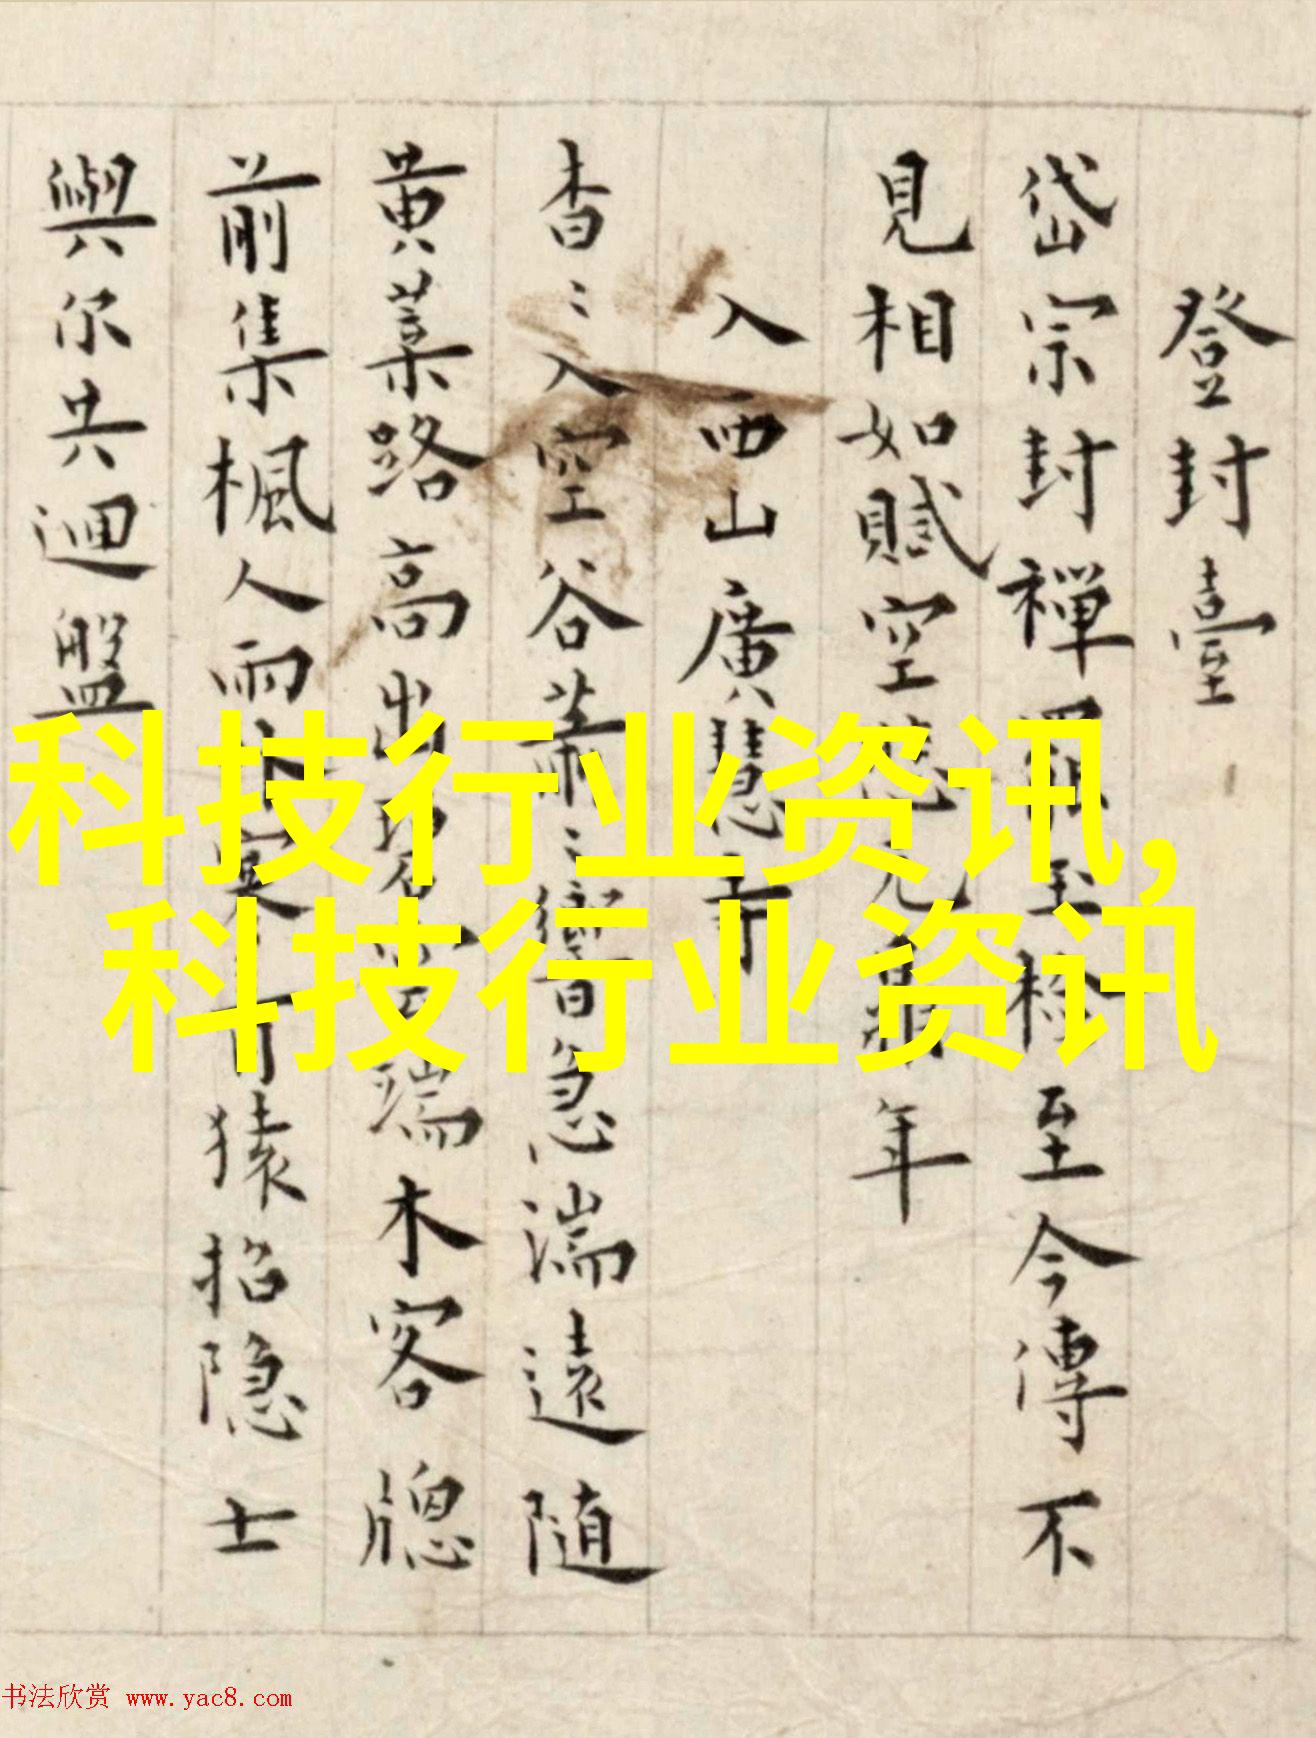 登封臺
岱宗封禪
至檢至今傳不
見相如賦空
元年
入西山廣慧寺
杳〻入空谷蕭〻響急湍遠隨
黄葉路高出
端木客牕
前集楓人雨
猿招隐士
與尔共迴盤
科技行业资讯,
科技行业资讯
书法欣赏 www.yac8.com